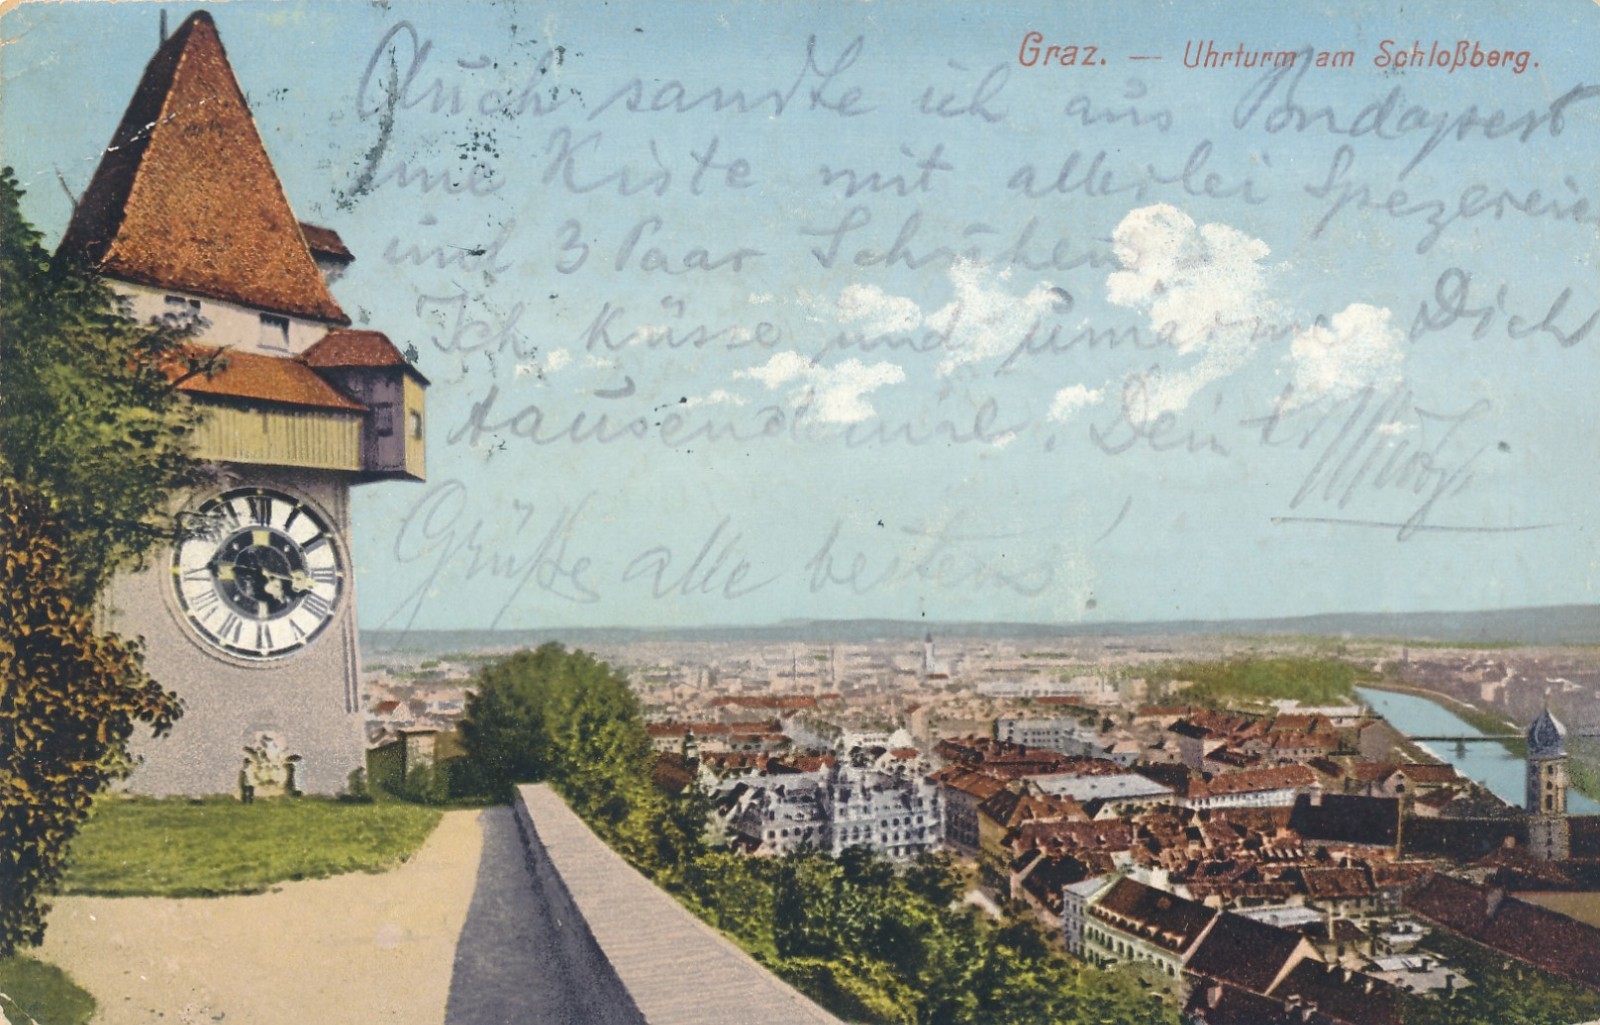 Graz. — Uhrturm am Schloßberg.
Auch sandte ich aus Bondapest
eine Kiste mit allerlei Spezereien
und 3 Paar Schuhen.
Ich küsse und umarme Dich
tausendmal. Dein
Grüße alle bestens!